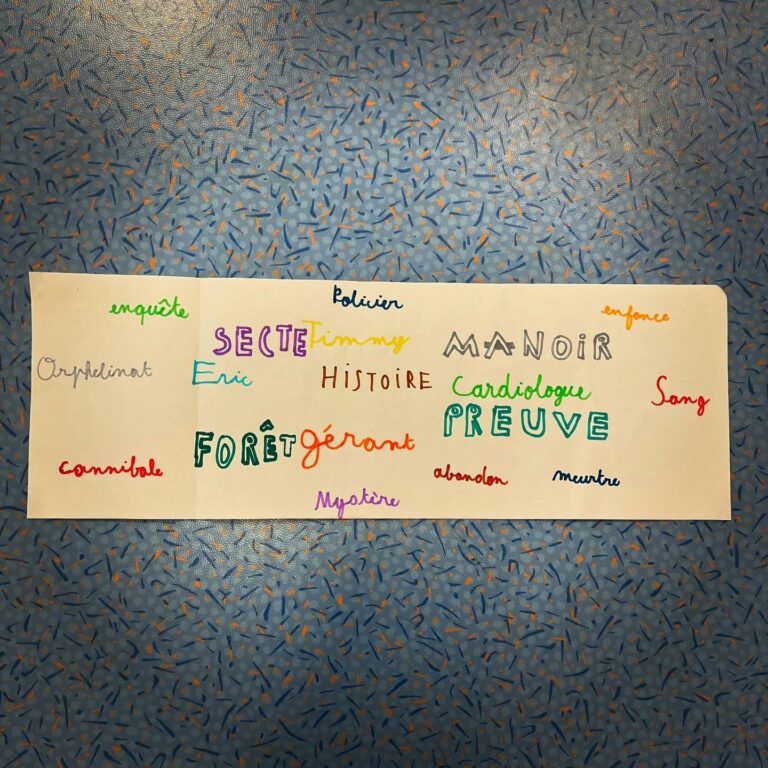 Policier
enquête
enfance
SECTE Timmy
MANOIR
Orphelinat
Eric
HISTOIRE
Cardiologue
Sang
PREUVE
FORÊT gérant
cannibale
abandon
meurtre
Mystère